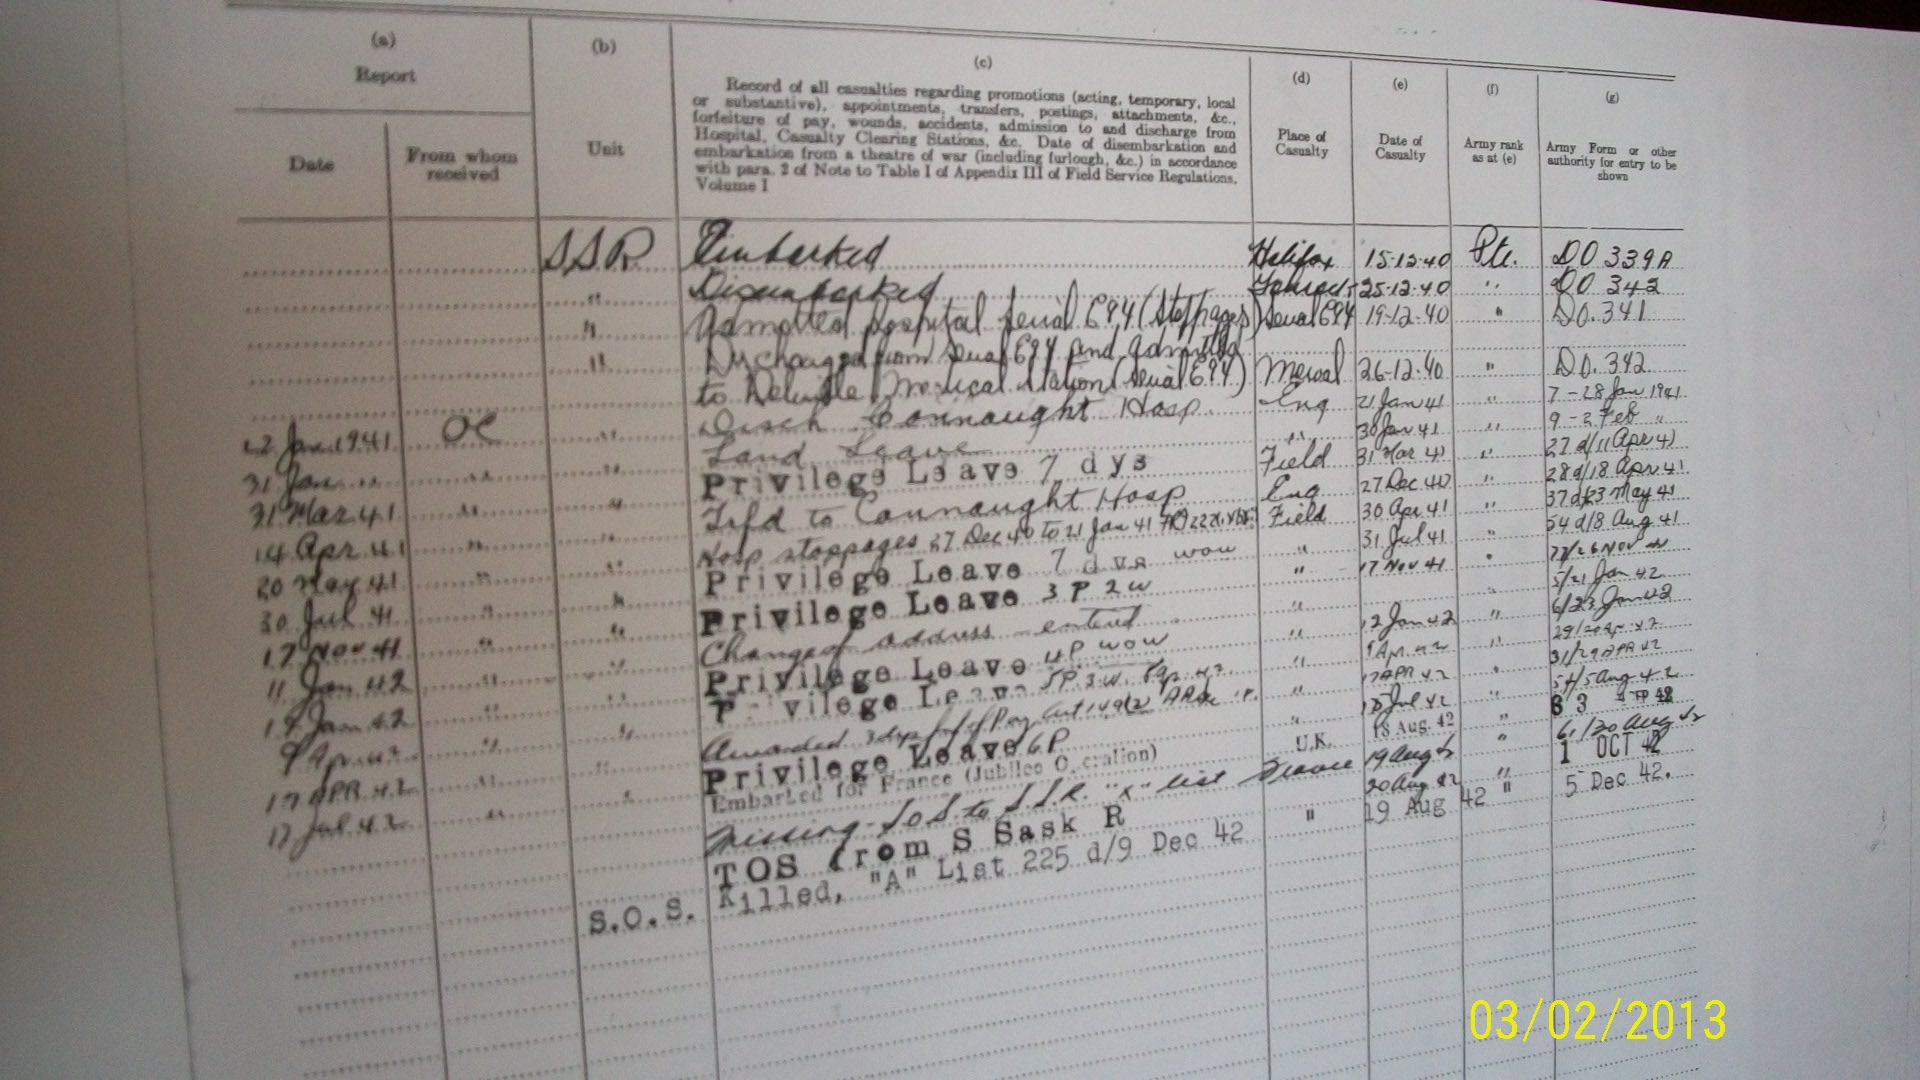 (a)
Report
Date
From whom received
(b)
Unit
(c)
Record of all casualties regarding promotions (acting, temporary, local
or substantive), appointments, transfers, postings, attachments, &c.,
forfeiture of pay, wounds, accidents, admission to and discharge from
Hospital, Casualty Clearing Stations, &c. Date of disembarkation and
embarkation from a theatre of war (including furlough, &c.) in accordance
with para. 2 of Note to Table I of Appendix III of Field Service Regulations,
Volume I
(d)
Place of
Casualty
(e)
Date of
Casualty
(f)
Army rank
as at (e)
(g)
Army Form or other
authority for entry to be
shown
SSR Embarked Halifax 15-12-40 Pte. DO 339A
" Disembarked 25-12-40 " DO 342
" Admitted Hospital Serial 694 (Stoppages) Serial 694 19-12-40 " DO.341
" Discharged from Serial 694 and admitted
to Medical Station (Serial 694) 26-12-40 " DO.342
22 Jan 1941 OC " Disch Connaught Hosp. Eng 21 Jan 41 " 7 - 28 Jan 1941
31 Jan " " " Land Leave " 30 Jan 41 " 9 - 2 Feb "
31 Mar 41 " " Privilege Leave 7 dys Field 31 Mar 41 " 27 d/11 Apr 41
14 Apr 41 " " Tsfd to Connaught Hosp Eng 27 Dec 40 " 28 d/18 Apr 41
20 May 41 " " Hosp stoppages 27 Dec 40 to 21 Jan 41 Field 30 Apr 41 " 37 d/23 May 41
30 Jul 41 " " Privilege Leave 7 dys wow " 31 Jul 41 " 54 d/8 Aug 41
17 Nov 41 " " Privilege Leave 3 P 2 W " 17 Nov 41 " 26 Nov
11 Jan 42 " " Change of address entered " " 5/21 Jan 42
14 Jan 42 " " Privilege Leave 4P wow " 12 Jan 42 " 6/23 Jan 42
9 Apr 42 " " Privilege Leave 5P 3W " 9 Apr 42 " 29/20 Apr 42
17 APR 42 " " Awarded 3 days of Pay " 17 APR 42 " 31/29 APR 42
17 Jul 42 " " Privilege Leave 6P " 18 Jul 42 " 54/5 Aug 42
Embarked for France (Jubilee Operation) U.K. 18 Aug. 42 " 83 42
Missing SOS to S.S.R. "X" list France 19 Aug 42 " 61/20 Aug 42
TOS from S Sask R 20 Aug 42 " 1 OCT 42
S.O.S. Killed, "A" List 225 d/9 Dec 42 " 19 Aug 42 " 5 Dec 42.
03/02/2013